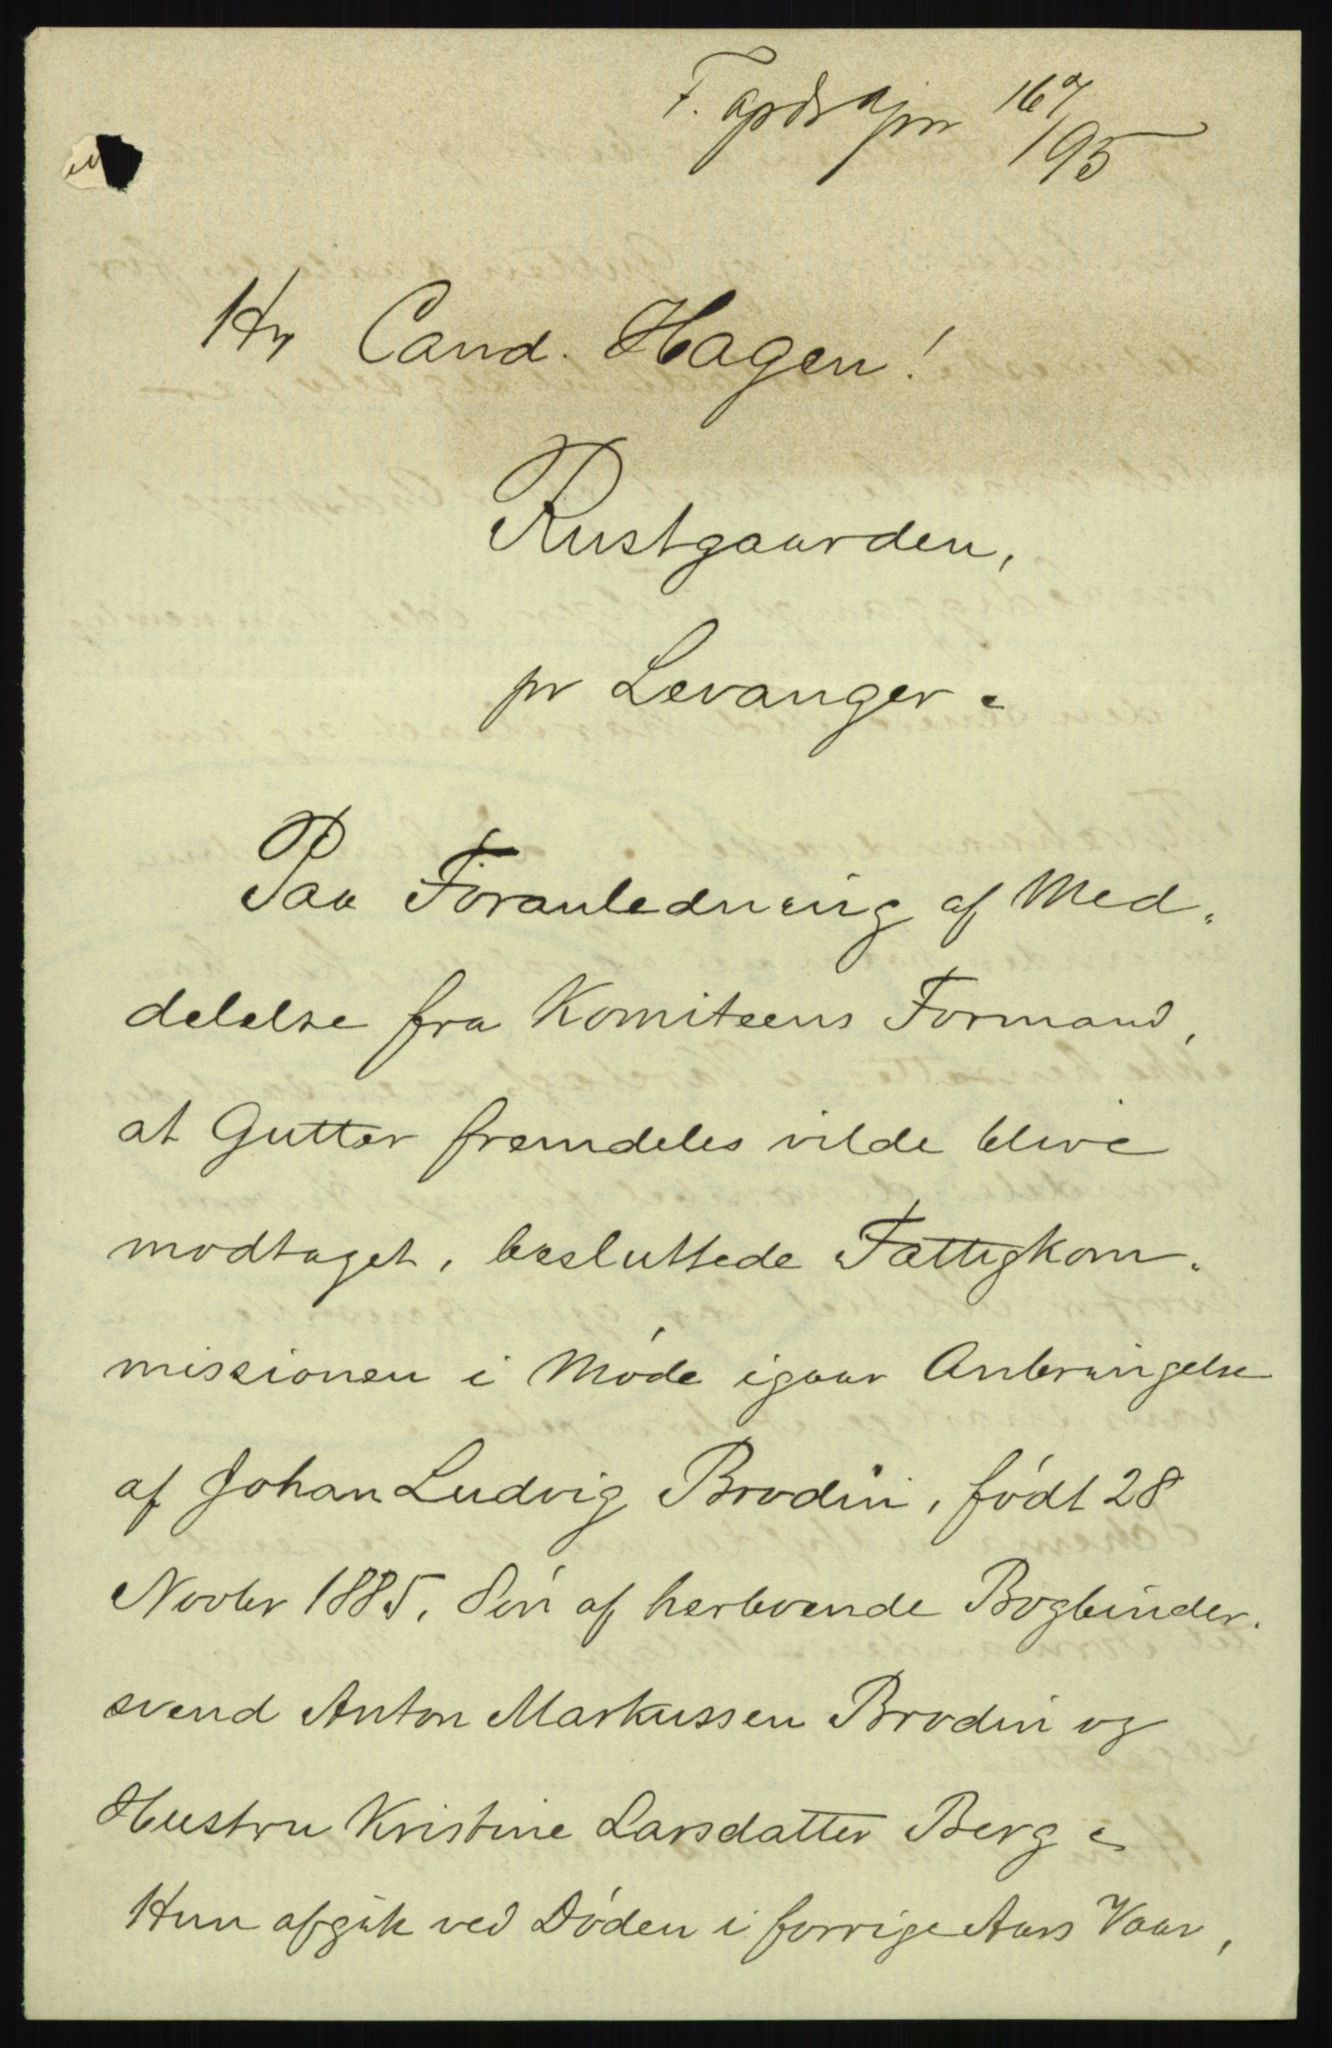 Hr Cand. Hagen!
Rustgaarden,
pr Levanger.
Paa Foranledning af Med-
delelse fra Komiteens Formand,
at Gutter fremdeles vilde blive
modtaget, besluttede Fattigkom-
missionen i Møde igaar Anbringelse
af Johan Ludvig Brodin, født 28
Novbr 1885. Søn af herboende Bogbinder-
svend Anton Markussen Brodin og
Hustru Kristine Larsdatter Berg.
Hun afgik ved Døden i forrige Aars Vaar,